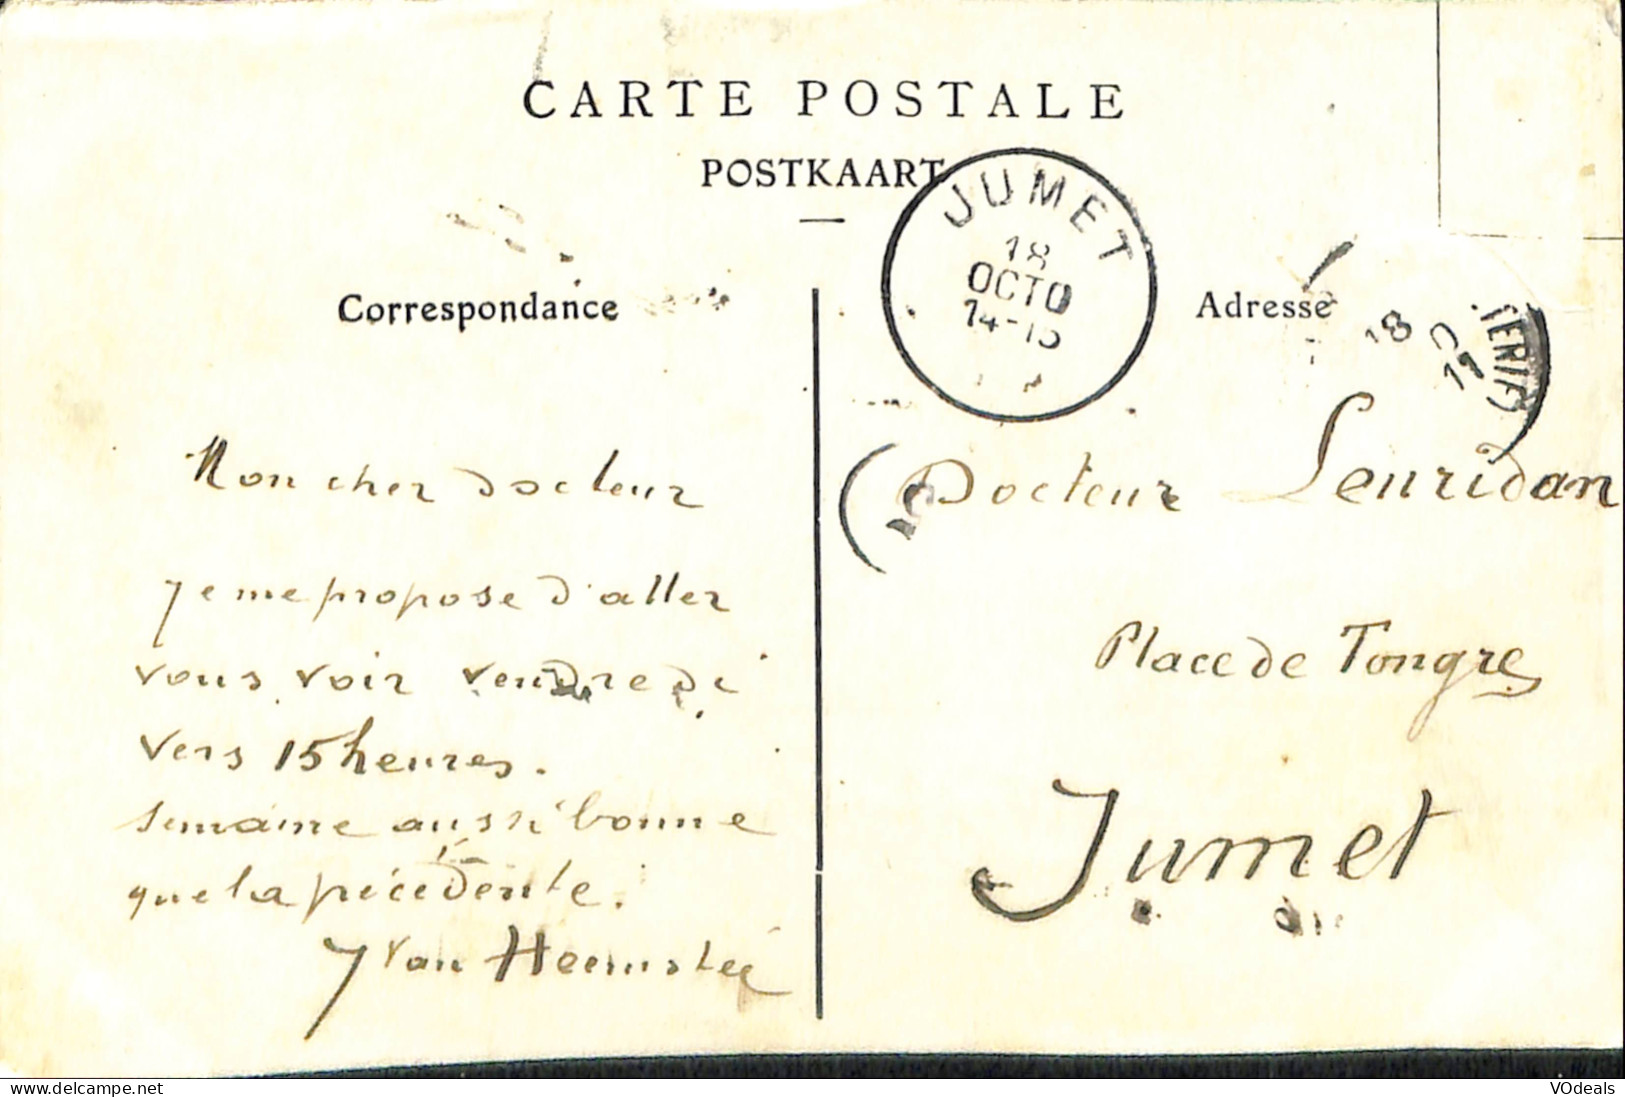 CARTE POSTALE
POSTKAART
JUMET
18
OCTO
14-15
Correspondance
Adresse
18
Mon cher docteur
je me propose d'aller
vous voir vendredi
vers 15 heures.
Semaine aussi bonne
que la précédente.
J Van
Docteur Leuridan
Place de Tongre
Jumet
delcampe.net
VOdeals